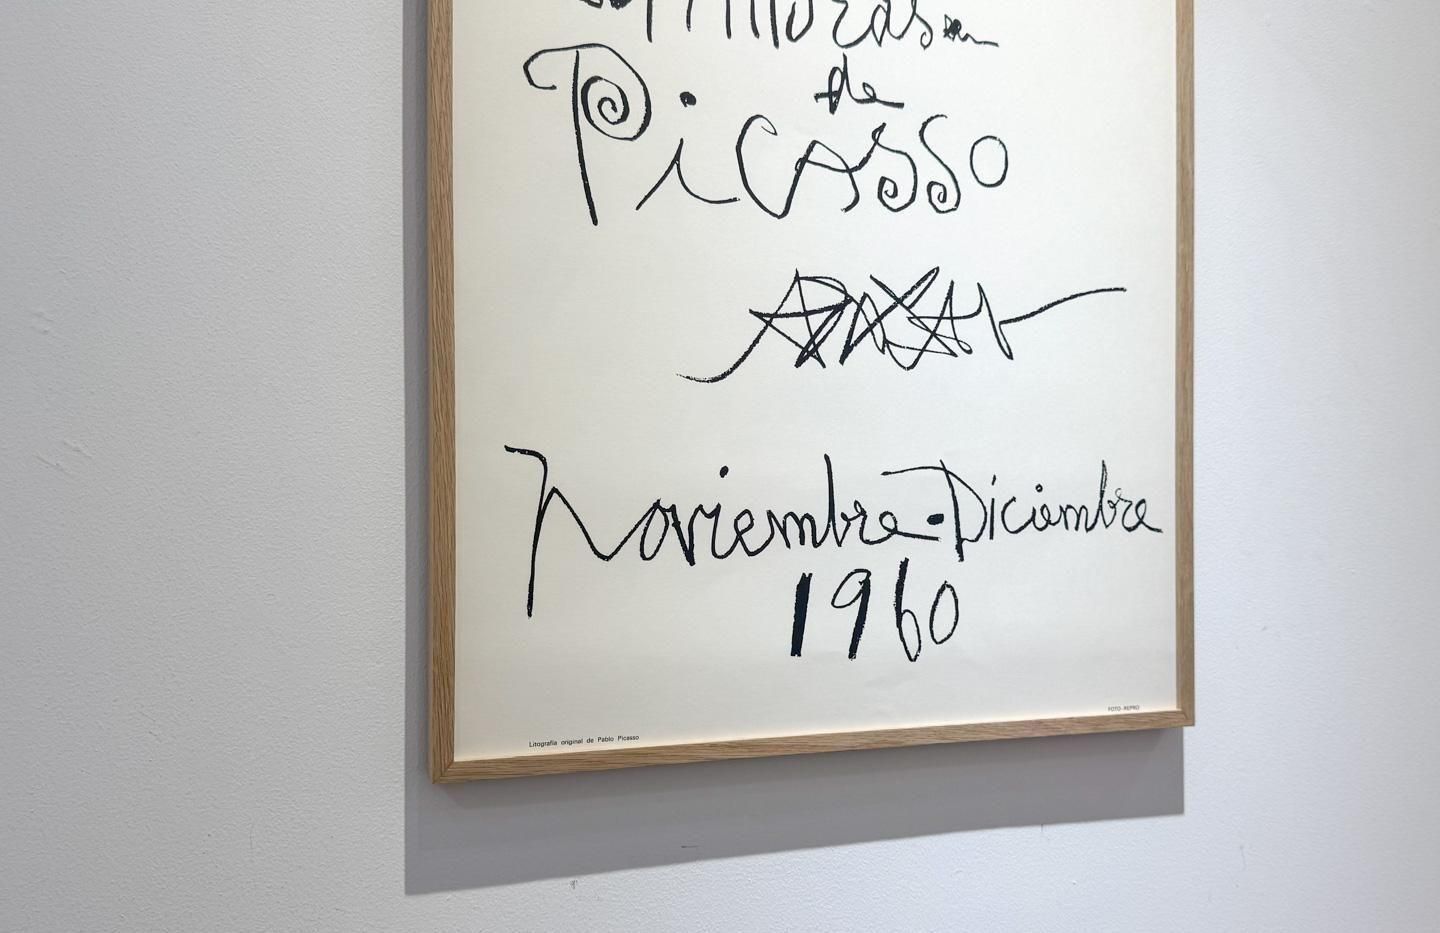 de
Picasso
Noviembre-Diciembre
1960
Litografía original de Pablo Picasso
FOTO-REPRO